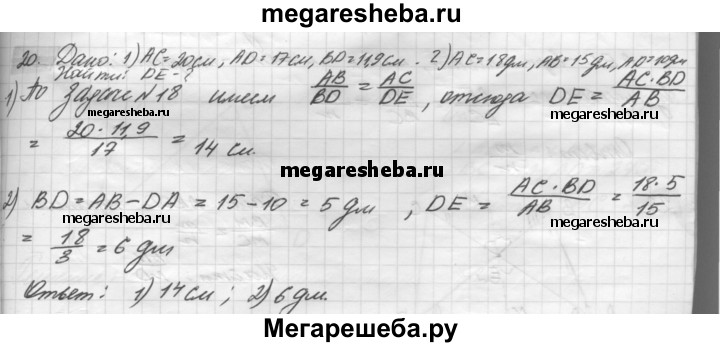 megaresheba.ru
20. Дано: 1) AC=20см, AD=17см, BD=11,9см. 2) AC=18дм, AB=15дм, AD=10дм
Найти: DE-?
1) По задаче №18 имеем AB/BD = AC/DE, откуда DE = AC·BD/AB
= 20·11,9/17 = 14 см.
megaresheba.ru
megaresheba.ru
2) BD=AB-DA = 15-10 = 5 дм, DE = AC·BD/AB = 18·5/15
megaresheba.ru
megaresheba.ru
= 18/3 = 6 дм
Ответ: 1) 14см; 2) 6дм.
Мегарешеба.ру